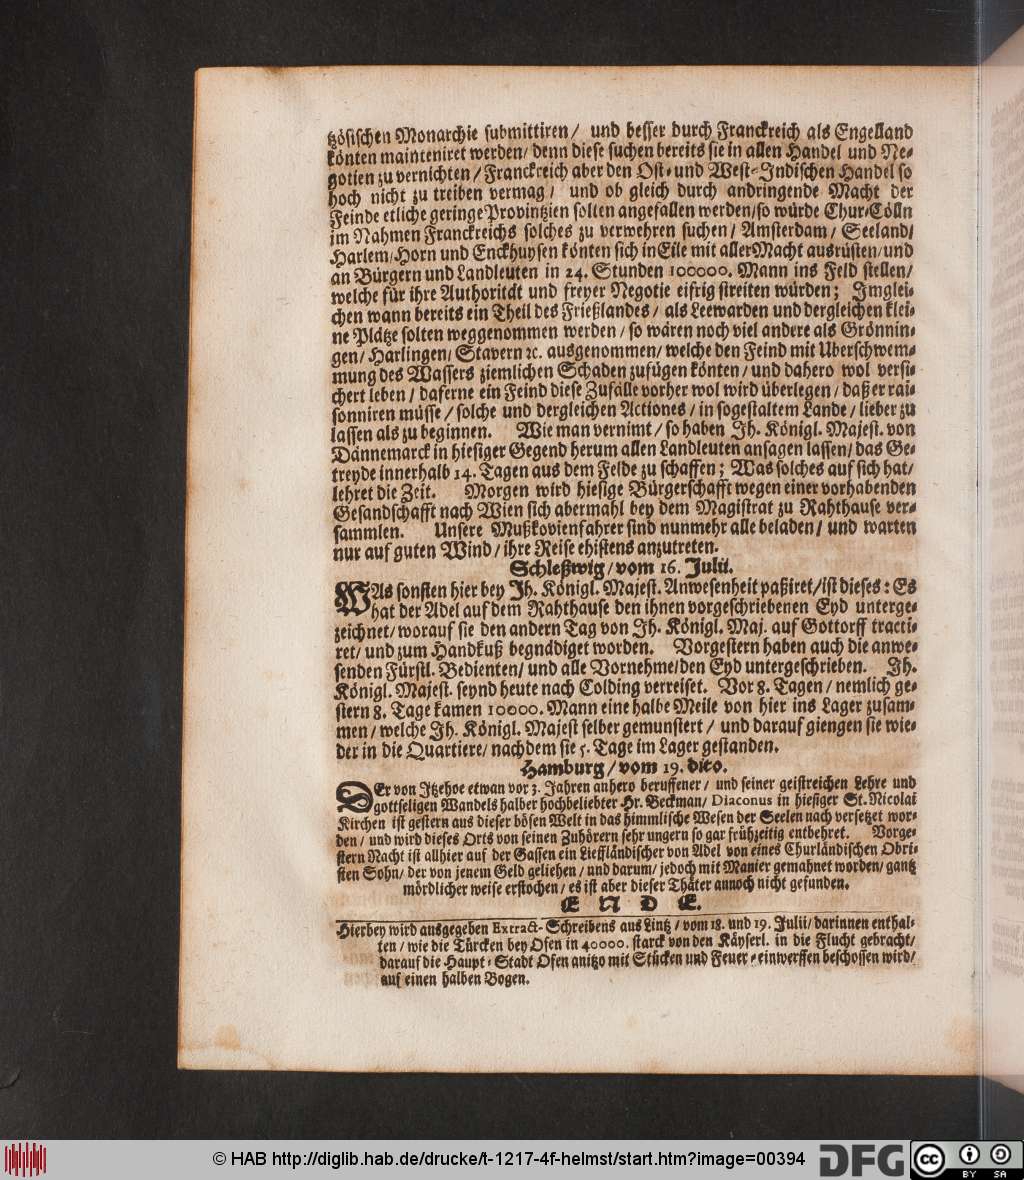 tzösischen Monarchie submittiren/ und besser durch Franckreich als Engelland
könten mainteniret werden/ denn diese suchen bereits sie in allen Handel und Ne-
gotien zu vernichten/ Franckreich aber den Ost- und West-Indischen Handel so
hoch nicht zu treiben vermag/ und ob gleich durch andringende Macht der
Feinde etliche geringe Provintzien solten angefallen werden/so würde Chur-Cölln
im Nahmen Franckreichs solches zu verwehren suchen/ Amsterdam/ Seeland/
Harlem/Horn und Enckhuysen könten sich in Eile mit aller Macht ausrüsten/und
an Bürgern und Landleuten in 24. Stunden 100000. Mann ins Feld stellen/
welche für ihre Authorität und freyer Negotie eifrig streiten würden; Imglei-
chen wann bereits ein Theil des Frießlandes/ als Leewarden und dergleichen klei-
ne Plätze solten weggenommen werden/ so wären noch viel andere als Grönnin-
gen/ Harlingen/ Stavern ꝛc. ausgenommen/ welche den Feind mit Uberschwem-
mung des Wassers ziemlichen Schaden zufügen könten/ und dahero wol versi-
chert leben/ daferne ein Feind diese Zufälle vorher wol wird überlegen/ daß er rai-
sonniren müsse/ solche und dergleichen Actiones/ in sogestaltem Lande/ lieber zu
lassen als zu beginnen. Wie man vernimt/ so haben Ih. Königl. Majest. von
Dännemarck in hiesiger Gegend herum allen Landleuten ansagen lassen/ das Ge-
treyde innerhalb 14. Tagen aus dem Felde zu schaffen; Was solches auf sich hat/
lehret die Zeit. Morgen wird hiesige Bürgerschafft wegen einer vorhabenden
Gesandschafft nach Wien sich abermahl bey dem Magistrat zu Rahthause ver-
sammlen. Unsere Mußkovienfahrer sind nunmehr alle beladen/ und warten
nur auf guten Wind/ ihre Reise ehistens anzutreten.
Schleßwig/ vom 16. Julii.
WAs sonsten hier bey Ih. Königl. Majest. Anwesenheit paßiret/ist dieses: Es
hat der Adel auf dem Rahthause den ihnen vorgeschriebenen Eyd unterge-
zeichnet/worauf sie den andern Tag von Ih. Königl. Maj. auf Gottorff tracti-
ret/ und zum Handkuß begnädiget worden. Vorgestern haben auch die anwe-
senden Fürstl. Bedienten/ und alle Vornehme/den Eyd untergeschrieben. Ih.
Königl. Majest. seynd heute nach Colding verreiset. Vor 8. Tagen/ nemlich ge-
stern 8. Tage kamen 10000. Mann eine halbe Meile von hier ins Lager zusam-
men/ welche Ih. Königl. Majest selber gemunstert/ und darauf giengen sie wie-
der in die Quartiere/ nachdem sie 5. Tage im Lager gestanden.
Hamburg/ vom 19. dito.
DEr von Itzehoe etwan vor 3. Jahren anhero beruffener/ und seiner geistreichen Lehre und
gottseligen Wandels halber hochbeliebter Hr. Beckman/ Diaconus in hiesiger St. Nicolai
Kirchen ist gestern aus dieser bösen Welt in das himmlische Wesen der Seelen nach versetzet wor-
den/ und wird dieses Orts von seinen Zuhörern sehr ungern so gar frühzeitig entbehret. Vorge-
stern Nacht ist allhier auf der Gassen ein Lieffländischer von Adel von eines Churländischen Obri-
sten Sohn/ der von jenem Geld geliehen/ und darum/ jedoch mit Manier gemahnet worden/ gantz
mördlicher weise erstochen/ es ist aber dieser Thäter annoch nicht gefunden.
E N D E.
Hierbey wird ausgegeben Extract-Schreibens aus Lintz/ vom 18. und 19. Julii/ darinnen enthal-
ten/ wie die Türcken bey Ofen in 40000. starck von den Käyserl. in die Flucht gebracht/
darauf die Haupt-Stadt Ofen anitzo mit Stücken und Feuer-einwerffen beschossen wird/
auf einen halben Bogen.
© HAB http://diglib.hab.de/drucke/t-1217-4f-helmst/start.htm?image=00394
DFG
cc BY SA